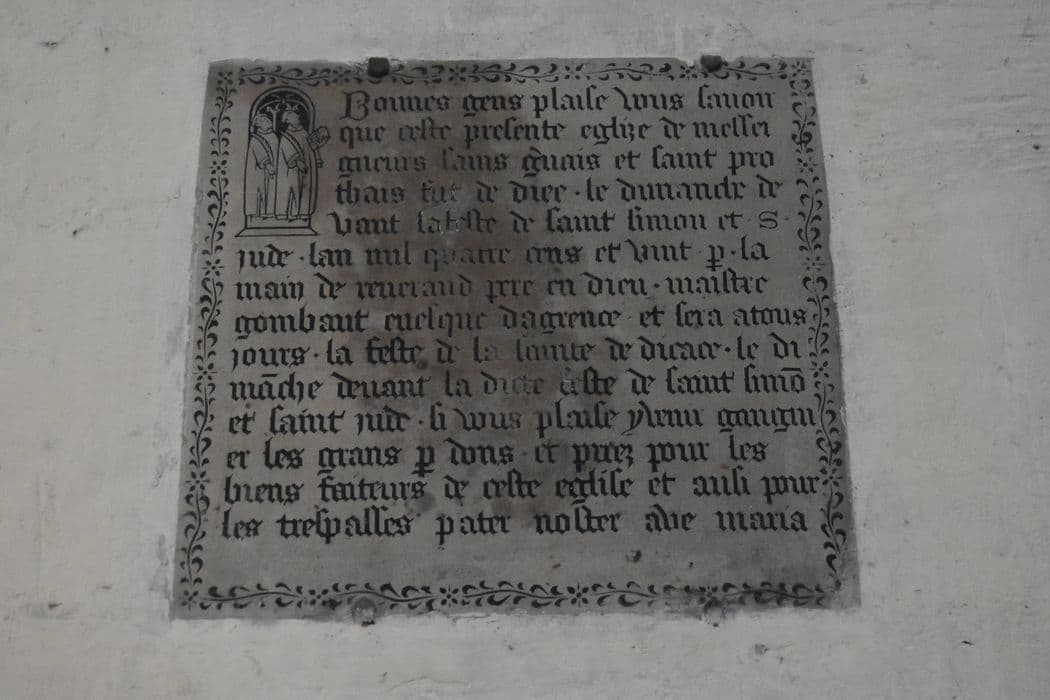 Bonnes gens plaise vous savoir
que ceste presente eglize de messei
gneurs sains g̃uais et saint pro
thais fut de diee · le dimanche de
vant la feste de saint simon et · s ·
jude · lan mil quatre cens et vint · p̱ · la
main de reuerand pere en dieu · maistre
gombaut euesque dagrence · et sera atous
jours · la feste de la sainte de dicace · le di
mãche deuant la dicte feste de saint simõ
et saint jude · si vous plaise y venir gaugni
er les grans p̱ dons · et priez pour les
biens faiteurs de ceste eglise et ausi pour
les trespasses pater noster ave maria